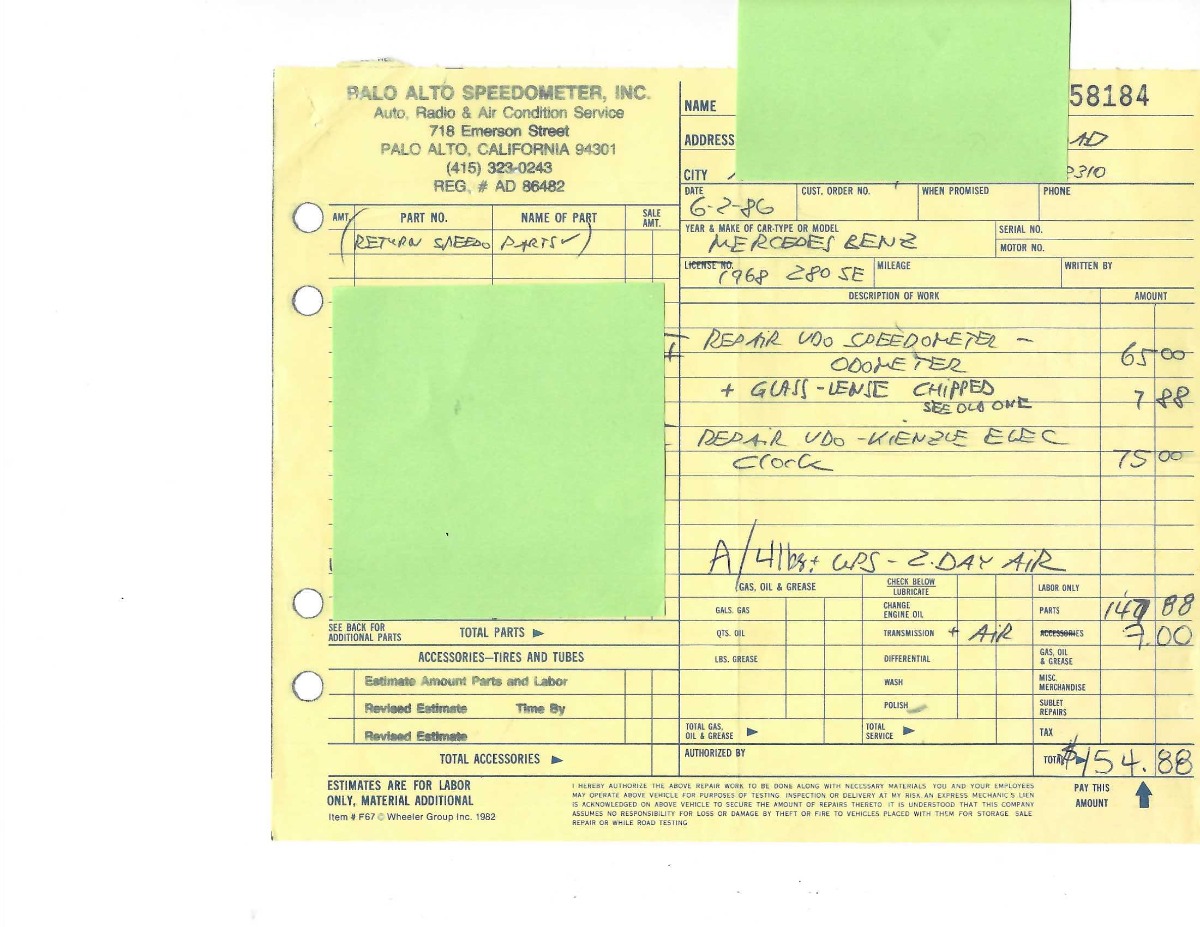 PALO ALTO SPEEDOMETER, INC.
Auto, Radio & Air Condition Service
718 Emerson Street
PALO ALTO, CALIFORNIA 94301
(415) 323-0243
REG. # AD 86482
58184
NAME
ADDRESS
CITY
310
DATE
6-2-86
CUST. ORDER NO.
WHEN PROMISED
PHONE
AMT.
PART NO.
NAME OF PART
SALE AMT.
(RETURN SPEEDO PARTS✓)
YEAR & MAKE OF CAR-TYPE OR MODEL
MERCEDES BENZ
SERIAL NO.
MOTOR NO.
LICENSE NO.
1968 280 SE
MILEAGE
WRITTEN BY
DESCRIPTION OF WORK
AMOUNT
REPAIR VDO SPEEDOMETER -
ODOMETER 65 00
+ GLASS-LENSE CHIPPED 7 88
SEE OLD ONE
REPAIR VDO-KIENZLE ELEC
Clock 75 00
A/4lbs+ UPS - 2.DAY AIR
GAS, OIL & GREASE
CHECK BELOW
LUBRICATE
LABOR ONLY
GALS. GAS
CHANGE ENGINE OIL
PARTS 147 88
QTS. OIL
TRANSMISSION + AIR
ACCESSORIES 7.00
LBS. GREASE
DIFFERENTIAL
GAS, OIL & GREASE
WASH
MISC. MERCHANDISE
POLISH
SUBLET REPAIRS
TOTAL GAS, OIL & GREASE
TOTAL SERVICE
TAX
AUTHORIZED BY
TOTAL $154.88
SEE BACK FOR ADDITIONAL PARTS
TOTAL PARTS
ACCESSORIES—TIRES AND TUBES
Estimate Amount Parts and Labor
Revised Estimate Time By
Revised Estimate
TOTAL ACCESSORIES
ESTIMATES ARE FOR LABOR
ONLY, MATERIAL ADDITIONAL
Item # F67 © Wheeler Group Inc. 1982
I HEREBY AUTHORIZE THE ABOVE REPAIR WORK TO BE DONE ALONG WITH NECESSARY MATERIALS. YOU AND YOUR EMPLOYEES
MAY OPERATE ABOVE VEHICLE FOR PURPOSES OF TESTING. INSPECTION OR DELIVERY AT MY RISK. AN EXPRESS MECHANIC'S LIEN
IS ACKNOWLEDGED ON ABOVE VEHICLE TO SECURE THE AMOUNT OF REPAIRS THERETO. IT IS UNDERSTOOD THAT THIS COMPANY
ASSUMES NO RESPONSIBILITY FOR LOSS OR DAMAGE BY THEFT OR FIRE TO VEHICLES PLACED WITH THEM FOR STORAGE SALE
REPAIR OR WHILE ROAD TESTING
PAY THIS
AMOUNT